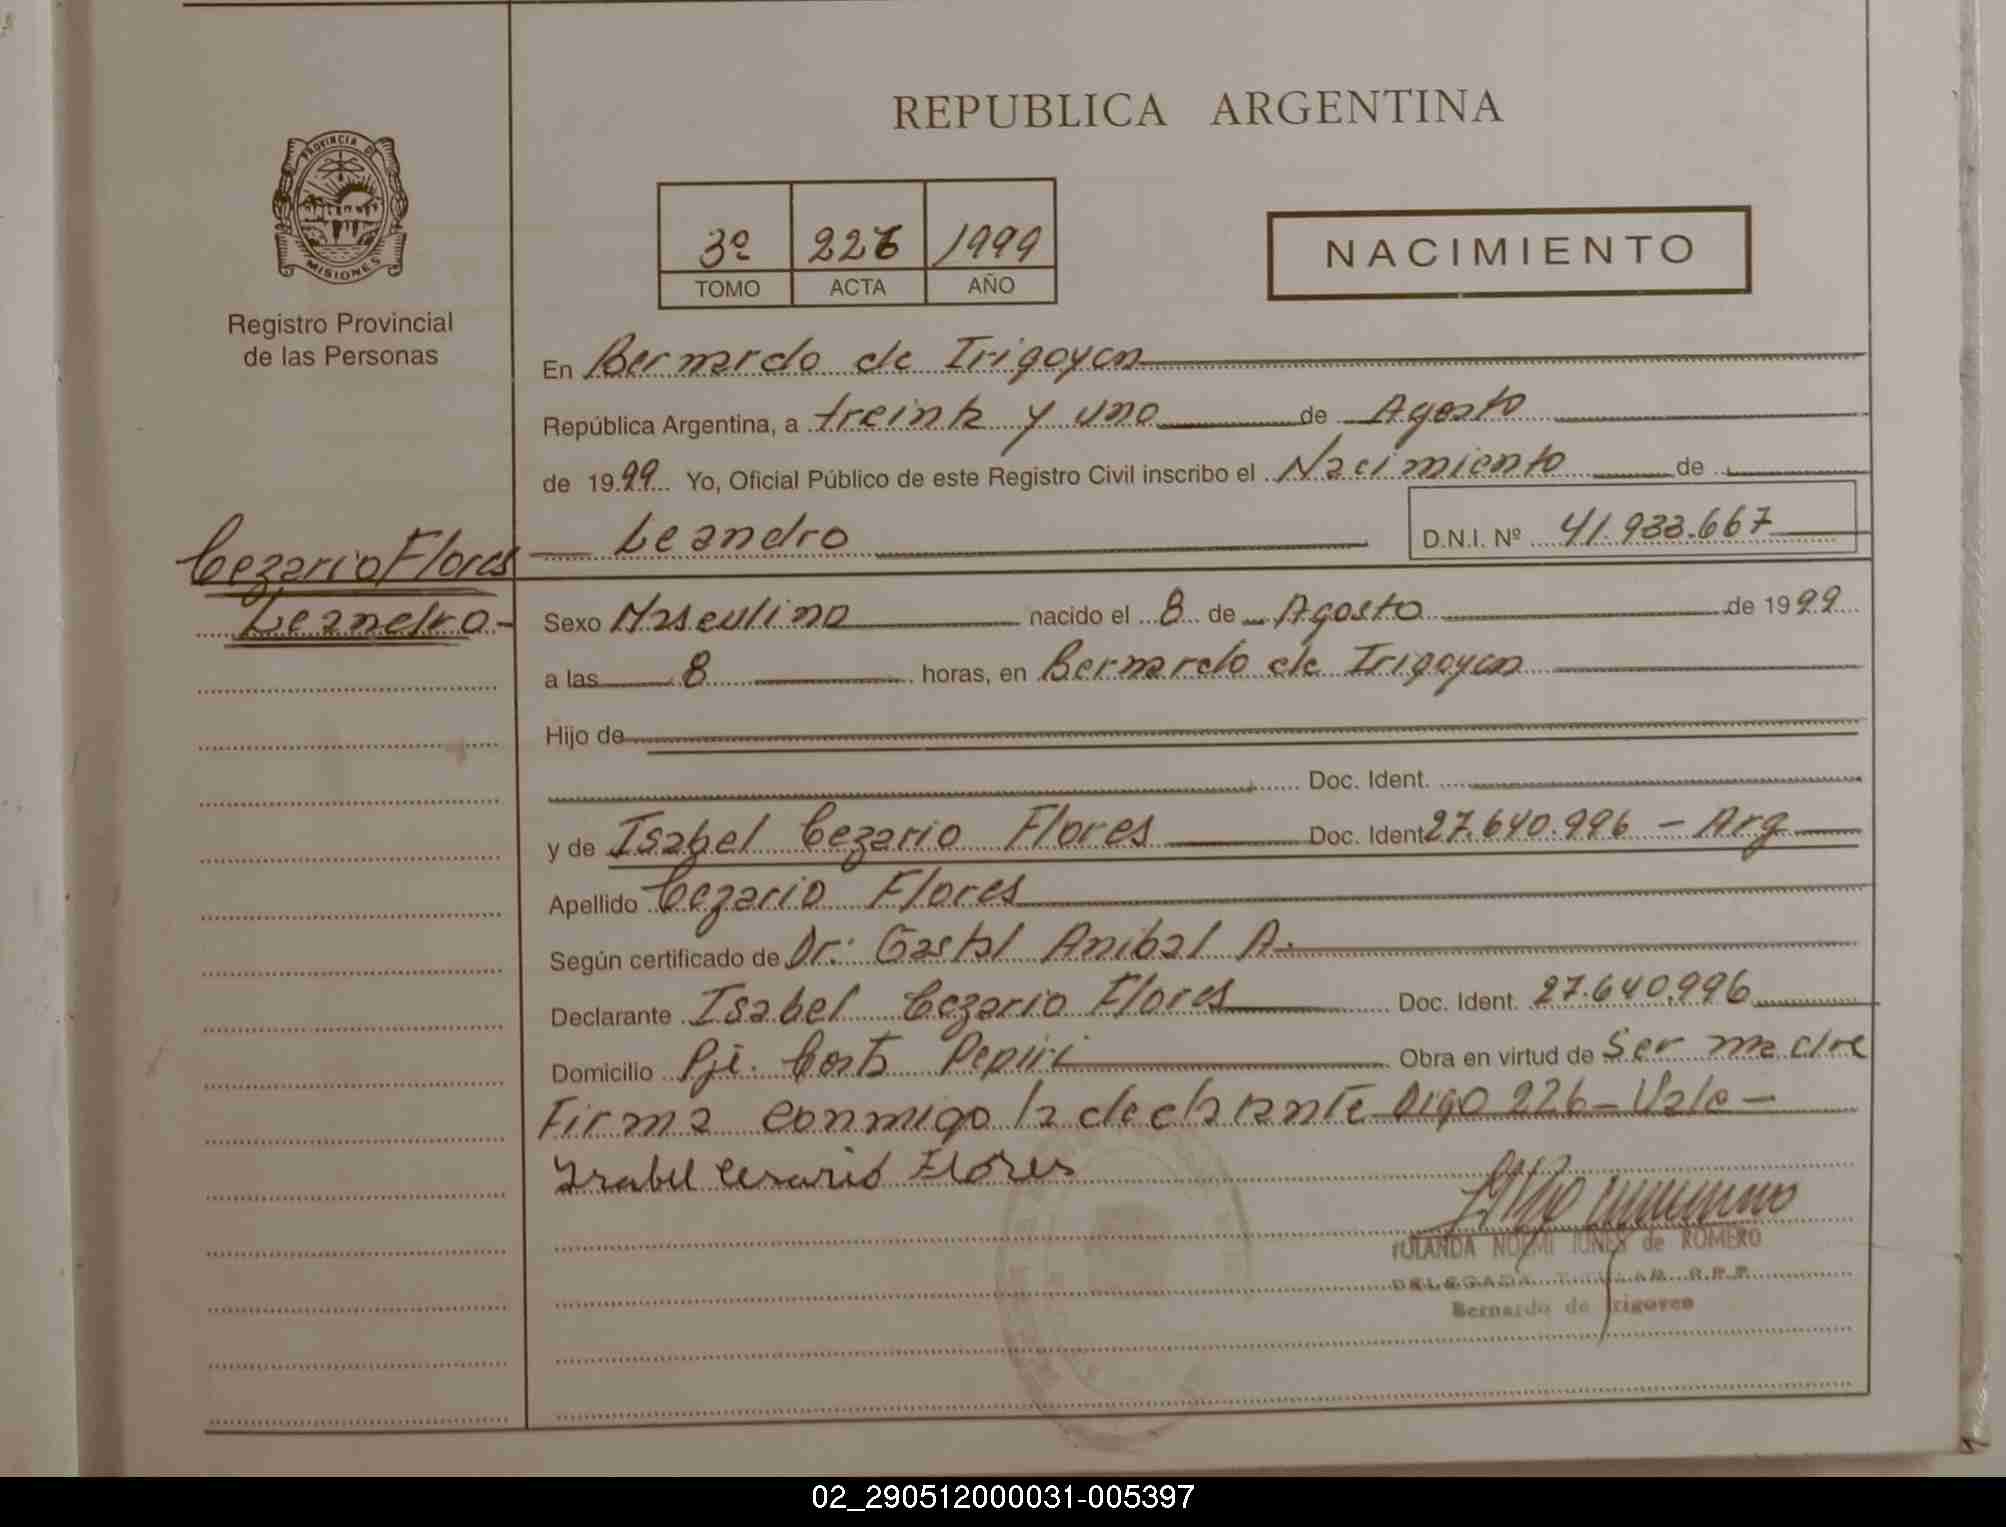 REPUBLICA ARGENTINA
PROVINCIA DE
MISIONES
Registro Provincial
de las Personas
3º 226 1999
TOMO ACTA AÑO
NACIMIENTO
En Bernardo de Irigoyen
República Argentina, a treinta y uno de Agosto
de 1999 Yo, Oficial Público de este Registro Civil inscribo el Nacimiento de
Leandro D.N.I. Nº 41.933.667
Cezario Flores
Leandro-
Sexo Masculino nacido el 8 de Agosto de 1999
a las 8 horas, en Bernardo de Irigoyen
Hijo de
Doc. Ident.
y de Isabel Cezario Flores Doc. Ident 27.640.996 - Arg
Apellido Cezario Flores
Según certificado de Dr: Gastal Anibal A.
Declarante Isabel Cezario Flores Doc. Ident. 27.640.996
Domicilio Pje. Costa Pepiri Obra en virtud de Ser madre
Firma conmigo la declarante Digo 226 - Vale -
Ysabel Cesario Flores
YOLANDA NOEMI de ROMERO
DELEGADA TITULAR R.P.P.
Bernardo de Irigoyen
02_290512000031-005397